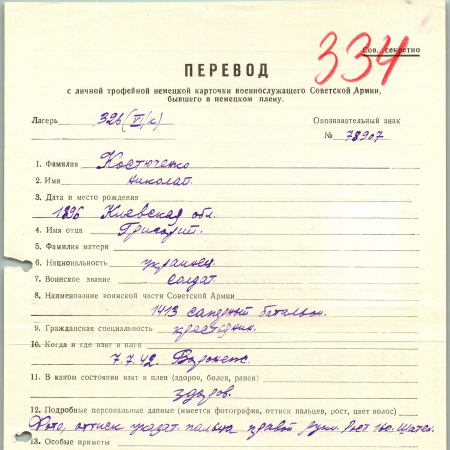 334
Сов. секретно
ПЕРЕВОД
с личной трофейной немецкой карточки военнослужащего Советской Армии,
бывшего в немецком плену.
Лагерь 326 (VI/к) Опознавательный знак
№ 78907
1. Фамилия Костюченко
2. Имя Николай.
3. Дата и место рождения
1896 Киевская обл.
4. Имя отца Григорий.
5. Фамилия матери
6. Национальность украинец.
7. Воинское звание солдат.
8. Наименование воинской части Советской Армии
1413 саперный батальон.
9. Гражданская специальность крестьянин.
10. Когда и где взят в плен
7.7.42. Воронеж.
11. В каком состоянии взят в плен (здоров, болен, ранен)
здоров.
12. Подробные персональные данные (имеется фотография, оттиск пальцев, рост, цвет волос)
Фото, оттиск указат. пальца правой руки. Рост 160. Шатен.
13. Особые приметы